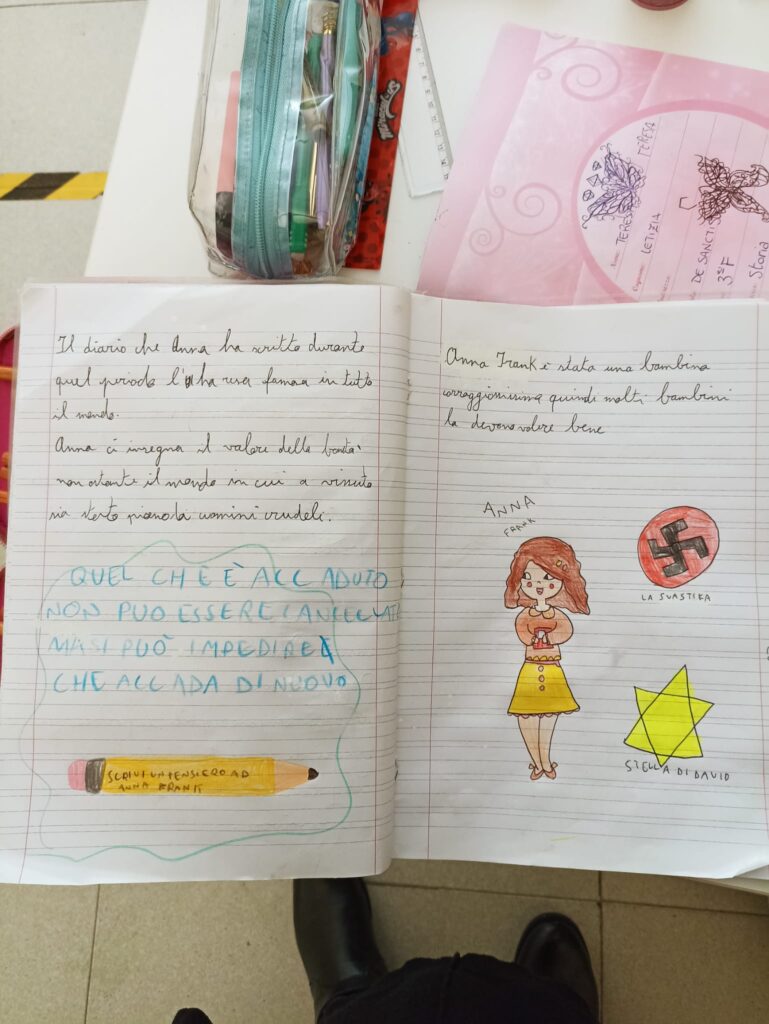 Miraculous
Nome: TERESA TERESA
Cognome: LETIZIA
DE SANCTIS
3ª F
Storia
Il diario che Anna ha scritto durante
quel periodo l'ha resa famosa in tutto
il mondo.
Anna ci insegna il valore della bontà
nonostante il mondo in cui a vissuto
sia stato pieno da uomini crudeli.
QUEL CHE È ACCADUTO
NON PUO ESSERE CANCELLATO
MA SI PUÒ IMPEDIRE
CHE ACCADA DI NUOVO
SCRIVI UN PENSIERO AD
ANNA FRANK
Anna Frank è stata una bambina
corraggiosissima quindi molti bambini
la devono volere bene
ANNA
FRANK
LA SVASTIKA
STELLA DI DAVID